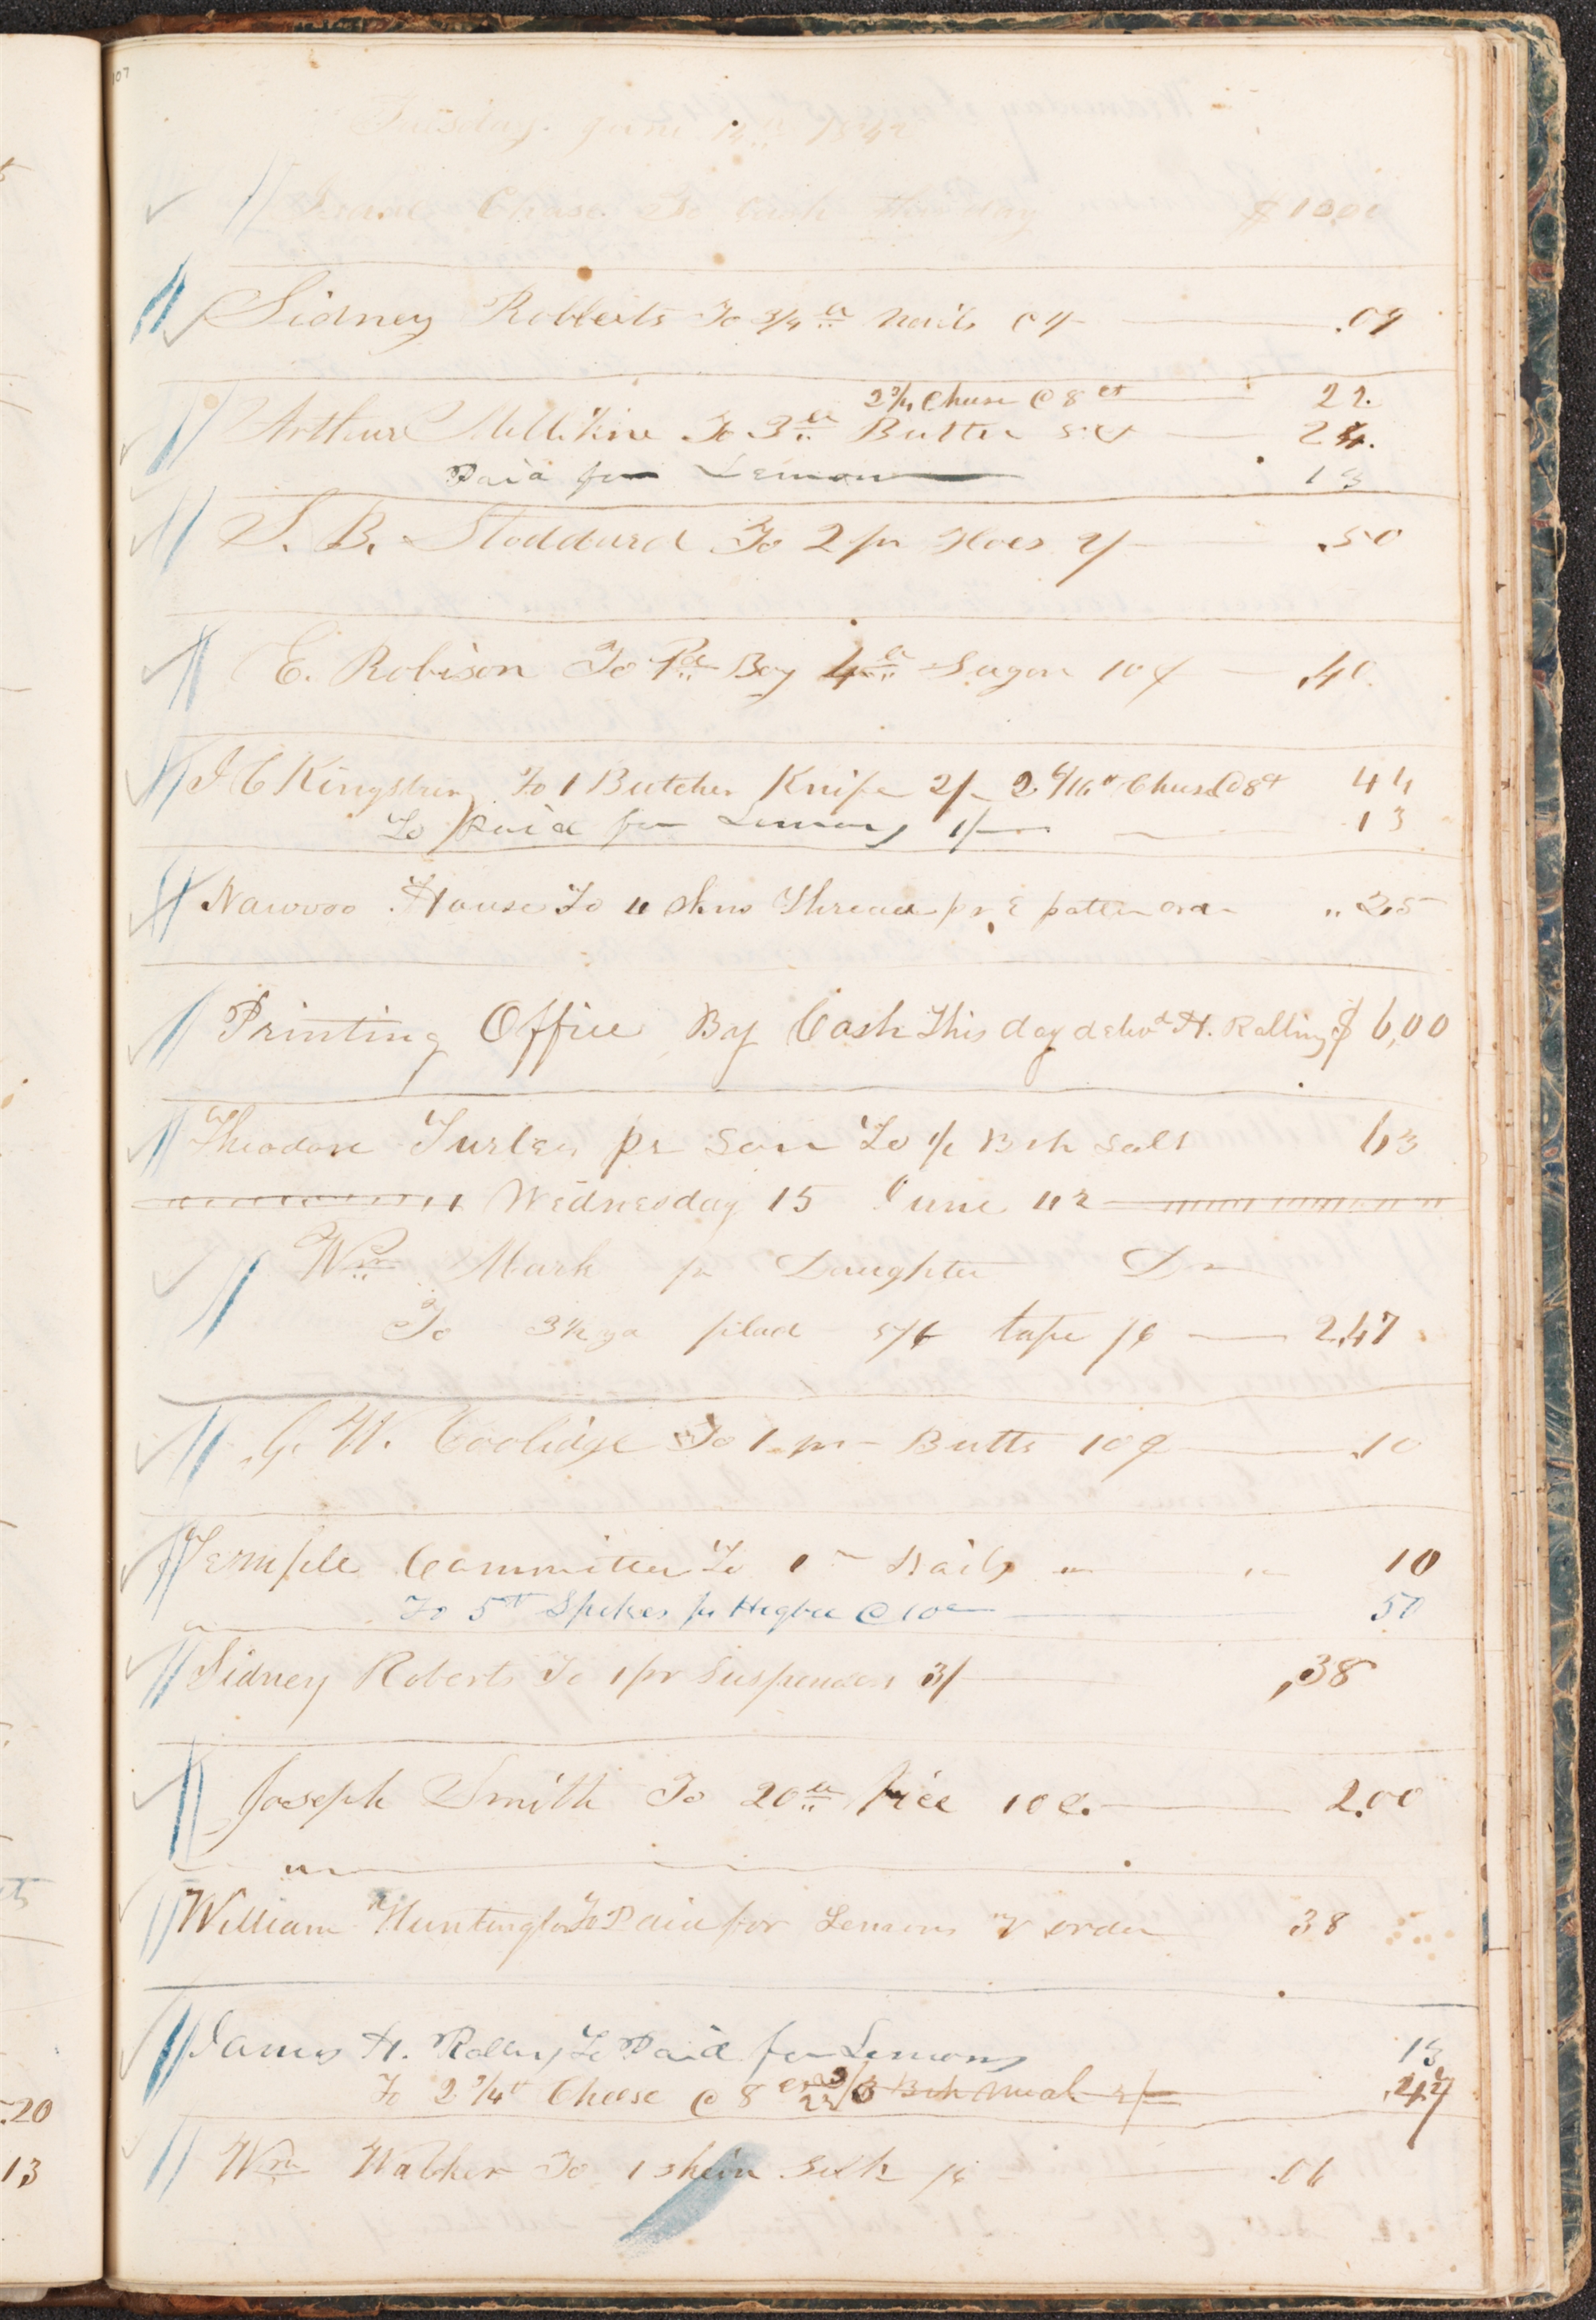 107
Tuesday June 14th 1842
Isaac Chase To Cash this day $10.00
Sidney Robberts To 3/4 lb Nails 09 .09
2 3/4 Chese @ 8 ct 22.
Arthur Millikine To 3 lb Butter 8 24.
Paid for Lemon 13
S. B. Stoddard To 2 pr 2/ .50
E. Robison To Pd Boy 4 lb Sugar 10¢ .40
J C Kingsbury To 1 Butcher Knife 2/ 2 6/16 Chese @ 8ct 44
To Paid for Lemons 1/ 13
Nawvoo House To 4 skns Thread pr E patten ordr 25
Printing Office By Cash This day delivd H. Rolling $ 6,00
Theodore Turley pr Son To 1/2 Bsh Salt 63
Wednesday 15 June 42
Wm Mark pr Daughter Dr
To 3 1/2 yd plad 5/6 tape /6 2,47
G. W. Coolidge To 1 pr Butts 10¢ .10
Temple Committee To 1 Nails 10
To 5 lb Spikes pr Higbee @ 10c 50
Sidney Roberts To 1 pr Suspenders 3/ ,38
Joseph Smith To 20 lb rice 10c. 2.00
William Huntington To Paid for Lemons & order 38
James H. Rollins To Paid for Lemons 13
To 2 3/4 lb Cheese @ 8 cts 22 Bsh Meal
Wm Walker To 1 skein Silk /6 .06
.20
13